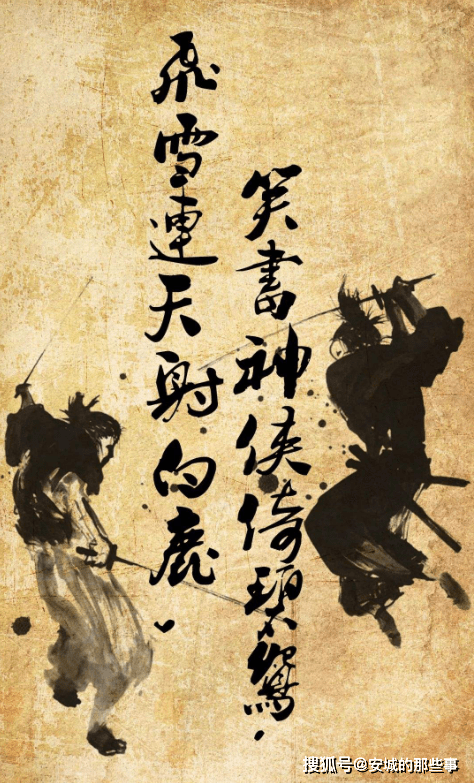 飛雪連天射白鹿、
笑書神俠倚碧鴛，
搜狐号@安城的那些事